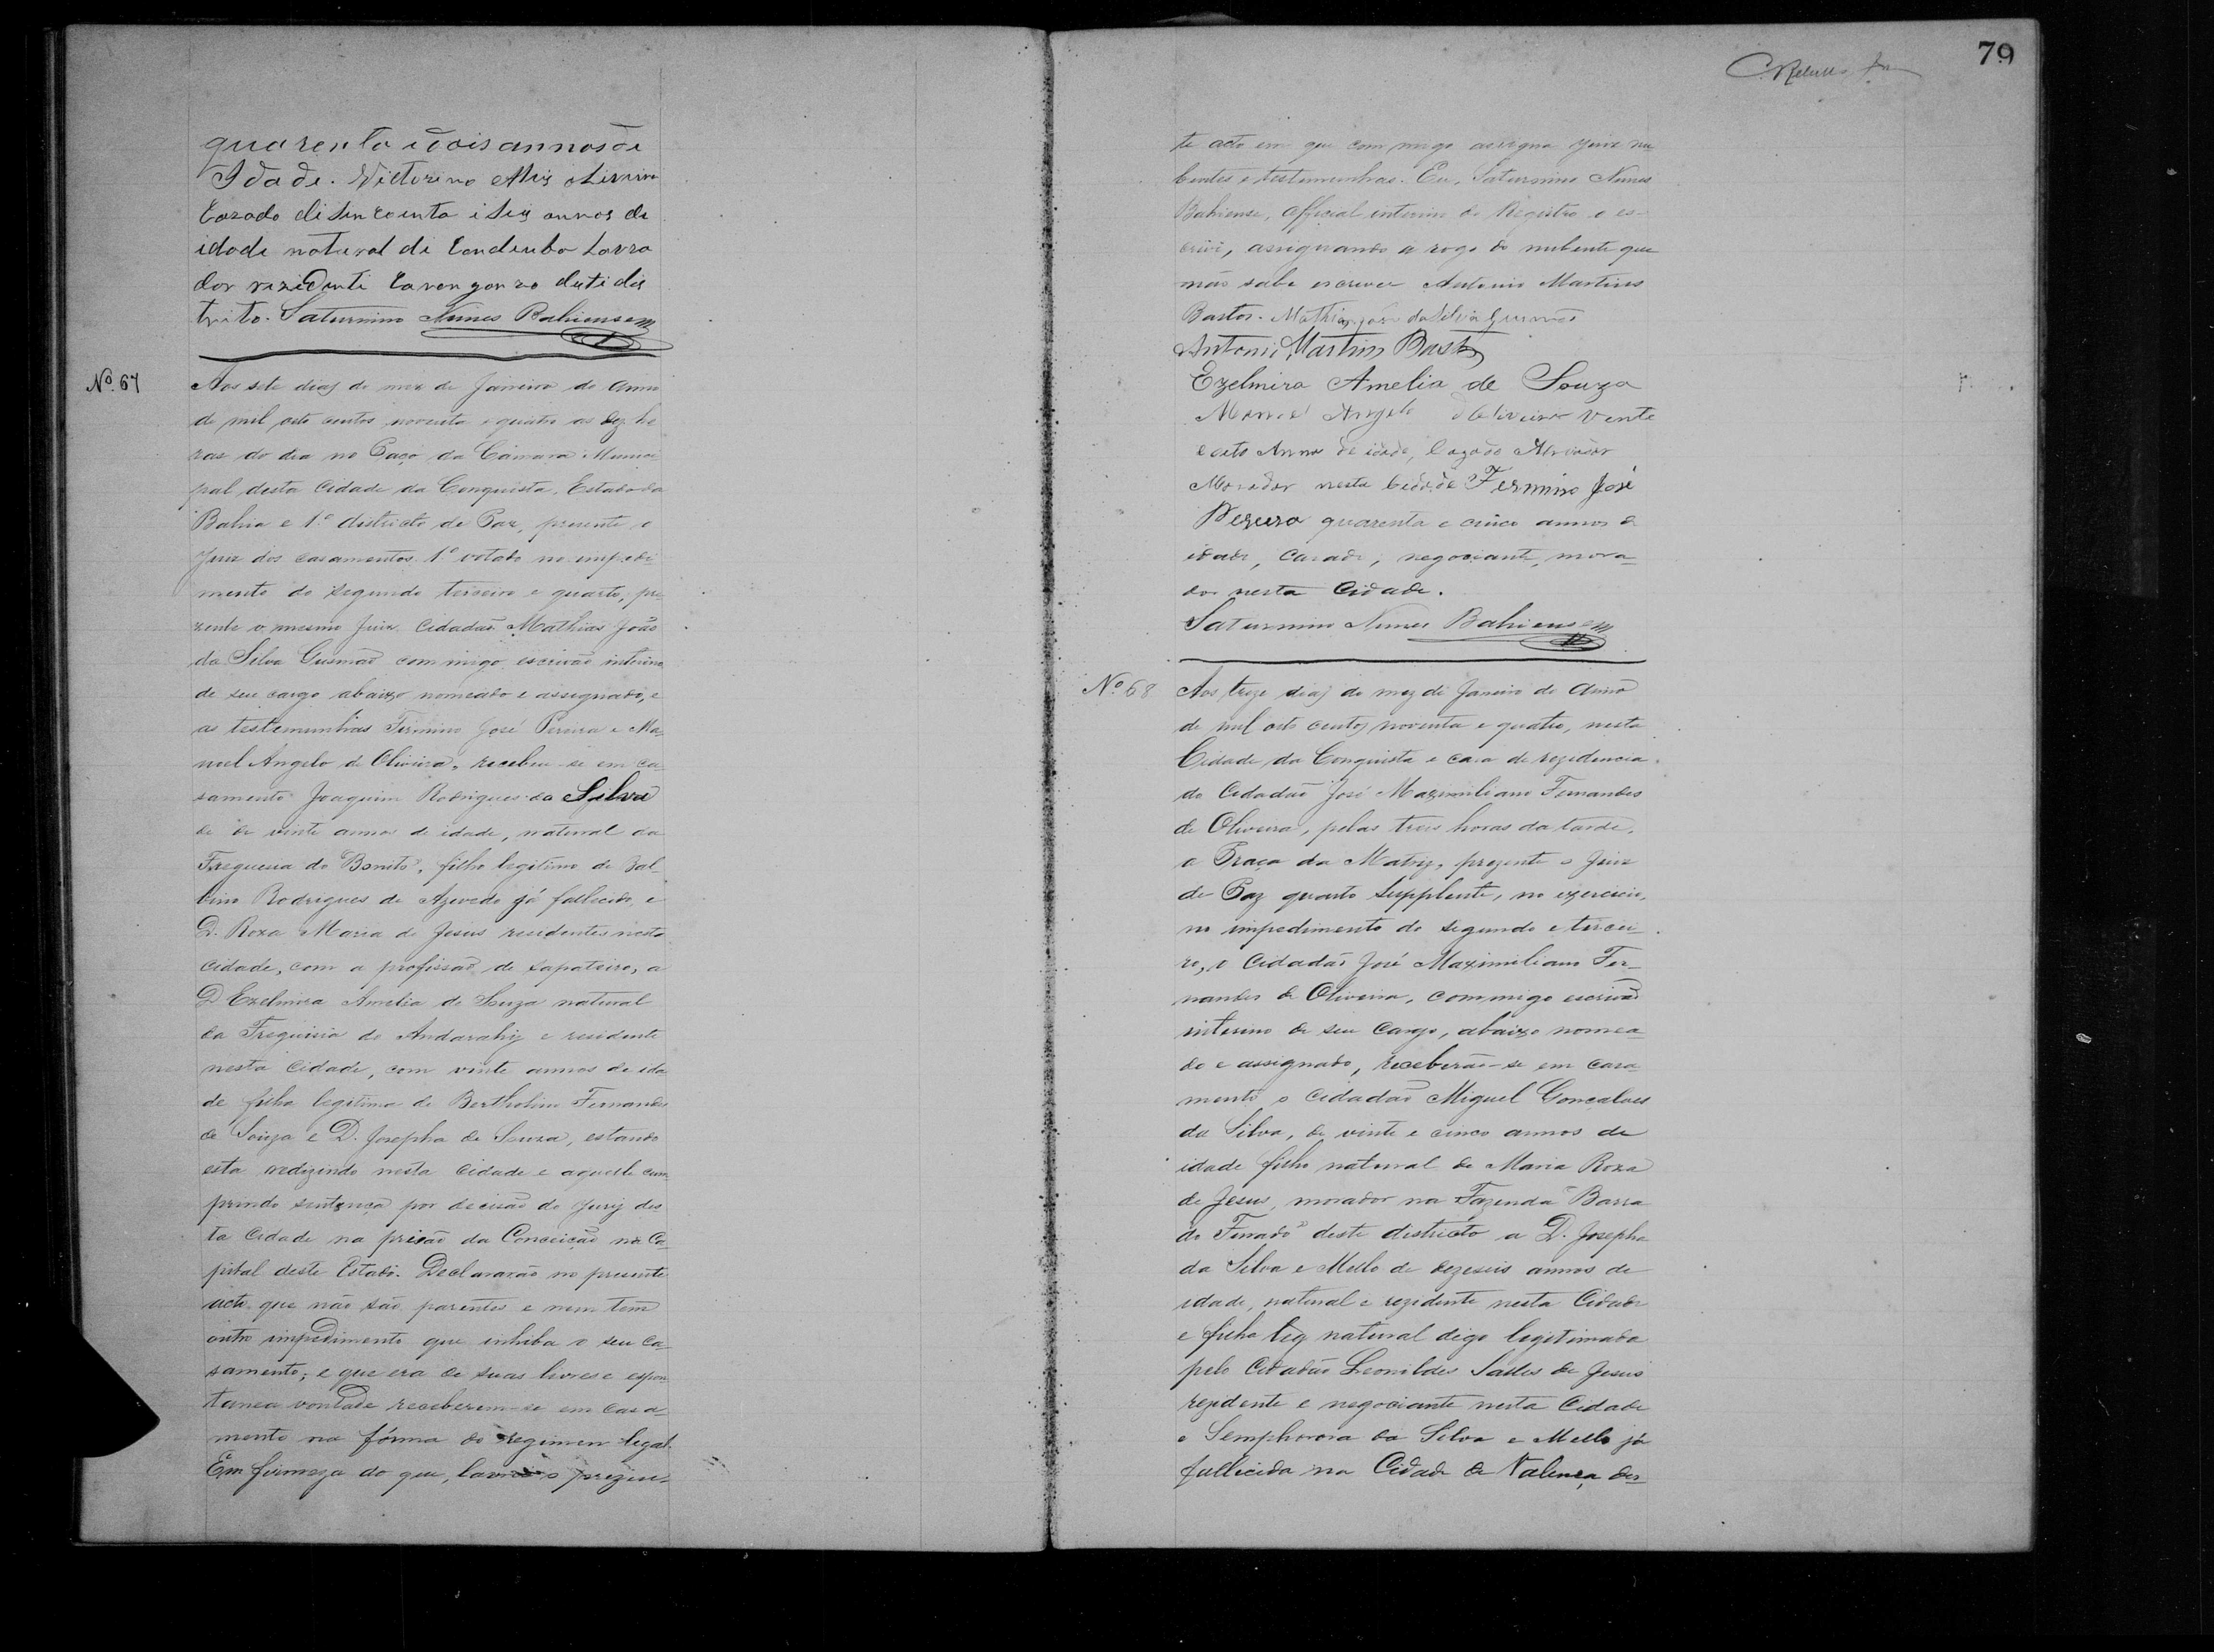 quarenta i dois annos di
Idade. Victorino Alis oliveira
Cazado di Sincoenta i Seis annos di
idade natural di Condeuba Lavra
dor rezidenti Cavengonzo desti dis
trito. Saturnino Nunes Bahiense
Nº 67
Aos sete dias do mez de Janeiro do anno
de mil oito centos noventa e quatro as dez ho
ras do dia no Paço da Câmara Munici
pal desta Cidade da Conquista, Estado da
Bahia e 1º districto de Paz, presente o
Juiz dos casamentos 1º votado no impedi
mento do segundo terceiro e quarto, pre
zente o mesmo Juiz Cidadão Mathias João
da Silva Gusmão commigo escrivão interino
de seu cargo abaixo nomeado e assignado, e
as testemunhas Firmino José Pereira e Ma
noel Angelo de Oliveira, receberu-se em ca
samento Joaquim Rodrigues da Silva
de de vinte annos de idade, natural da
Freguesia do "Bonito", filho legitimo de Bal
bino Rodrigues de Azevedo já fallecido, e
D. Roza Maria de Jesus residentes nesta
cidade, com a profissão de sapateiro, a
D Ezelmira Amelia de Souza natural
da Freguisia do Andarahy e residente
nesta Cidade, com vinte annos de ida
de filha legitima de Bertholino Fernandes
de Souza e D. Josepha de Souza, estando
esta redizindo nesta Cidade e aquelle cum
prindo sentença por decisão do Jury des
ta Cidade na prisão da Conceição na Ca
pital deste Estado. Declararão no presente
acto que não são parentes e nem tem
outro impedimento que inhiba o seu ca
samento; e que era de suas livres e espon
tanea vontade receberem-se em casa-
mento na fórma do regimen legal.
Em firmeza do que, lavrado o prezen-
79
te acto em que com migo assigna Juiz nu
bentes e testemunhas. Eu, Saturnino Nunes
Bahiense, official interino do Registro o es-
crivi, assignando a rogo do nubente que
não sabe escrever Antonio Martins
Bastos. Mathias João da Silva Gusmão
Antonio Martins Bastos
Ezelmira Amelia de Souza
Manoel Angelo d Oliveira Vente
e oito Annos de idade, Cazado
Morador nesta Cidade Fermino José
Pereira quarenta e cinco annos d
idade, Casado, negociante, mora-
dor nesta Cidade.
Saturnino Nunes Bahiense
Nº 68
Aos treze dias do mez di Janeiro do Anno
de mil oito centos noventa e quatro, nesta
Cidade da Conquista e casa de rezidencia
do Cidadão José Maximiliano Fernandes
de Oliveira, pelas tres horas da tarde,
a Praça da Matriz, prezente o Juiz
de Paz quarto Supplente, no exercicio,
no impedimento do segundo e tercei-
ro, o Cidadão José Maximiliano Fer-
nandes de Oliveira, commigo escrivão
interino de seu Cargo, abaixo nomea-
do e assignado, receberão-se em casa
mento o Cidadão Miguel Goncalves
da Silva, de vinte e cinco annos de
idade filho natural de Maria Roza
de Jesus, morador na Fazenda "Barra
do Furado" deste districto a D. Josepha
da Silva e Mello de dezeseis annos de
idade, natural e rezidente nesta Cidade
e filha leg natural digo legitimada
pelo Cidadão Leonildes Salles de Jesus
rezidente e negociante nesta Cidade
e Semphorora da Silva e Mello já
fallecida na Cidade de Valença des-